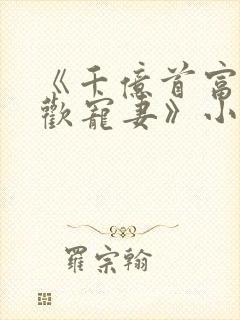 《千億首富
歡寵妻》小
羅宗翰